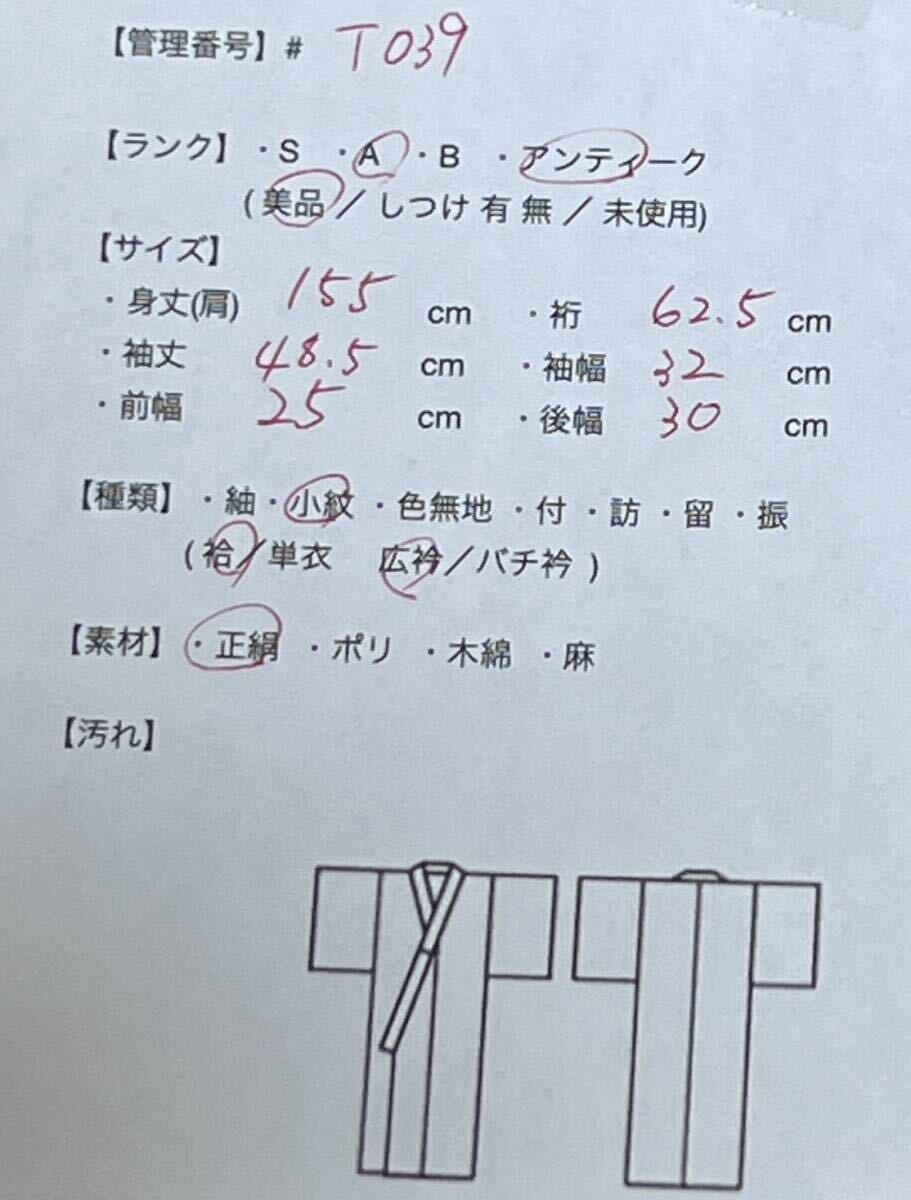 【管理番号】# T039
【ランク】・S ・A ・B ・アンティーク
(美品／しつけ有無／未使用)
【サイズ】
・身丈(肩) 155 cm ・裄 62.5 cm
・袖丈 48.5 cm ・袖幅 32 cm
・前幅 25 cm ・後幅 30 cm
【種類】・紬・小紋・色無地・付・訪・留・振
(袷／単衣 広衿／バチ衿)
【素材】・正絹・ポリ・木綿・麻
【汚れ】